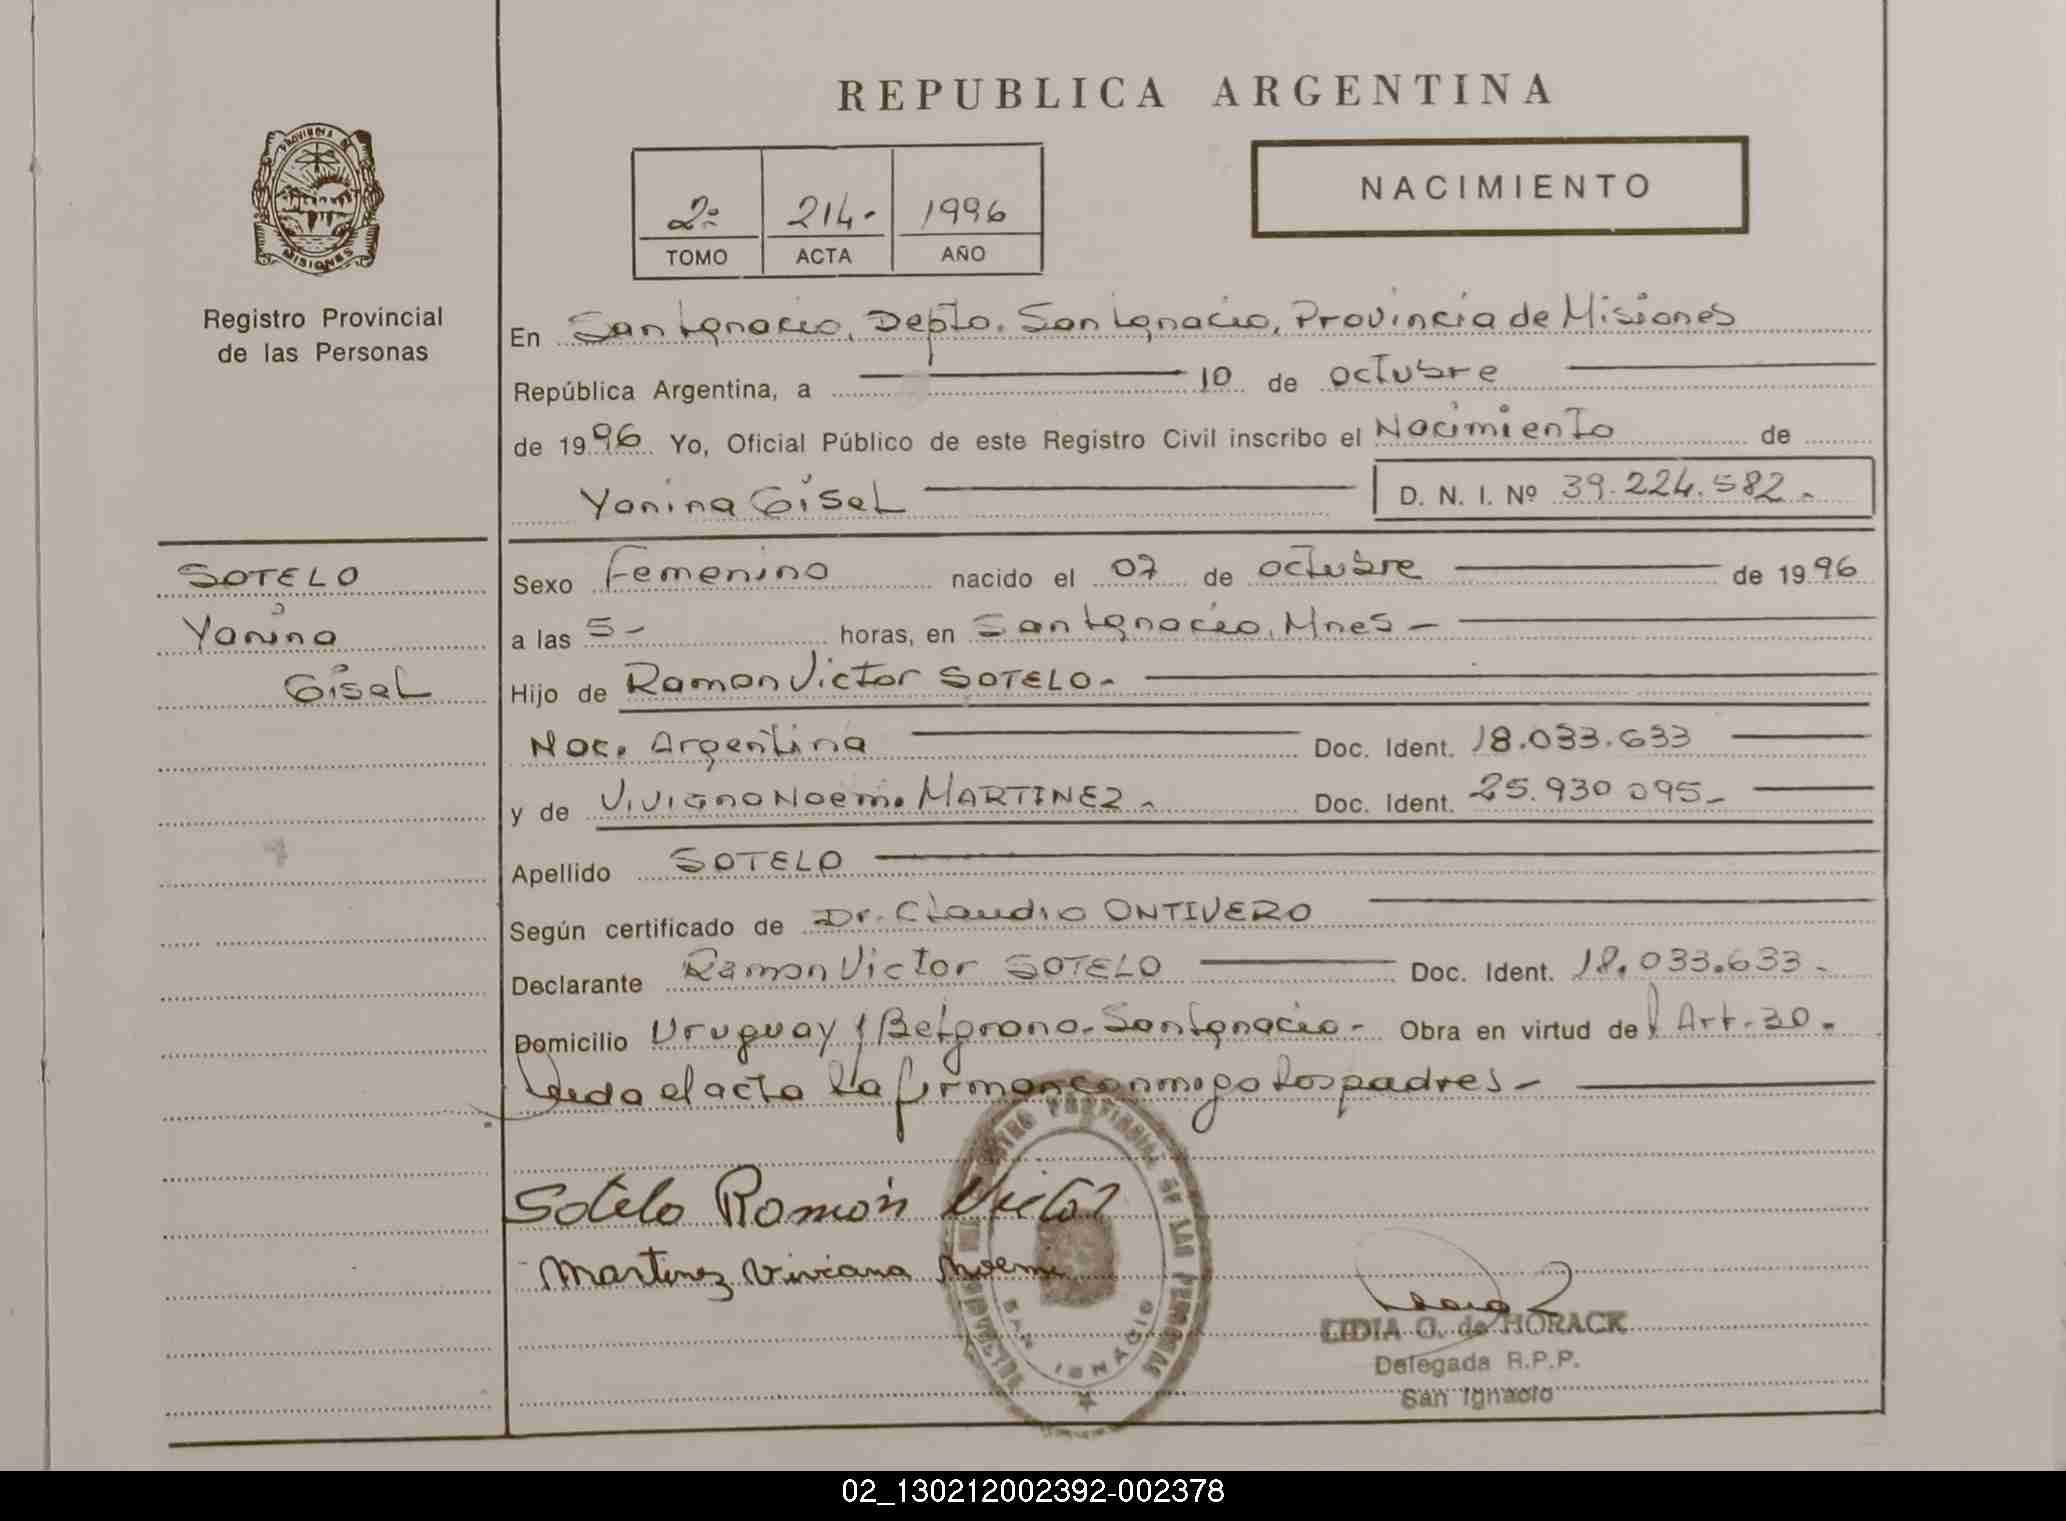 REPUBLICA ARGENTINA
NACIMIENTO
2º 214- 1996
TOMO ACTA AÑO
PROVINCIA DE
MISIONES
Registro Provincial
de las Personas
En San Ignacio, Depto. San Ignacio, Provincia de Misiones
República Argentina, a 10 de octubre
de 1996 Yo, Oficial Público de este Registro Civil inscribo el Nacimiento de
Yanina Gisel D. N. I. Nº 39.224.582.-
SOTELO
Yanina
Gisel
Sexo Femenino nacido el 07 de octubre de 1996
a las 5- horas, en San Ignacio, Mnes -
Hijo de Ramon Victor SOTELO-
Nac. Argentina Doc. Ident. 18.033.633
y de Viviana Noemi MARTINEZ- Doc. Ident. 25.930 095-
Apellido SOTELO
Según certificado de Dr. Claudio ONTIVERO
Declarante Ramon Victor SOTELO Doc. Ident. 18.033.633-
Domicilio Uruguay y Belgrano-San Ignacio- Obra en virtud del Art-30.
Leida el acta la firman conmigo los padres-
Sotelo Ramón Victor
Martinez Viviana Noemi
REGISTRO PROVINCIAL DE LAS PERSONAS
SAN IGNACIO
LIDIA G. de HORACK
Delegada R.P.P.
San Ignacio
02_130212002392-002378